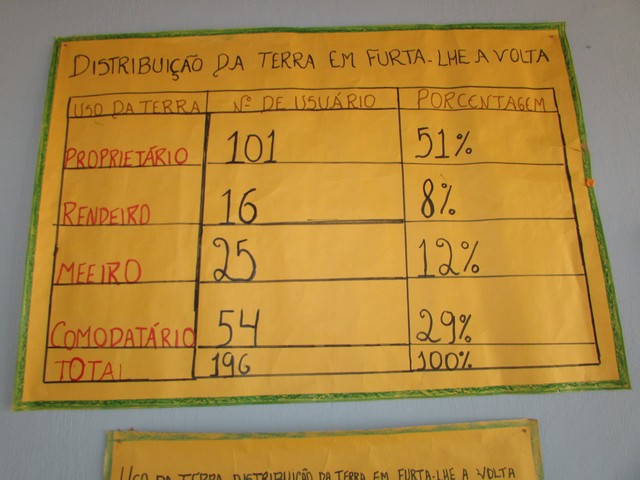 DISTRIBUIÇÃO DA TERRA EM FURTA-LHE A VOLTA
USO DA TERRA Nº DE USUÁRIO PORCENTAGEM
PROPRIETÁRIO 101 51%
RENDEIRO 16 8%
MEEIRO 25 12%
COMODATÁRIO 54 29%
TOTAL 196 100%
USO DA TERRA DISTRIBUIÇÃO DA TERRA EM FURTA-LHE A VOLTA